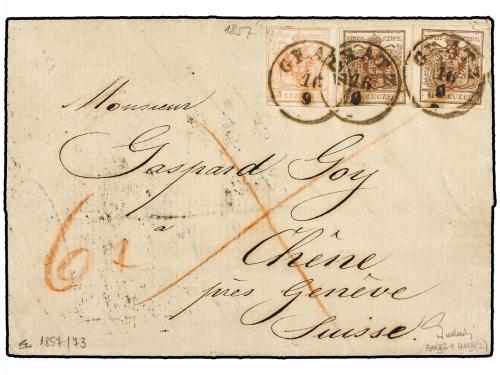 1857
GRATZ GRATZ GRATZ
16 16 16
9 9 9
KREUZER KREUZER
Monsieur
Gaspard Goy
à
Chêne
près Genève
Suisse.
61
1857/73